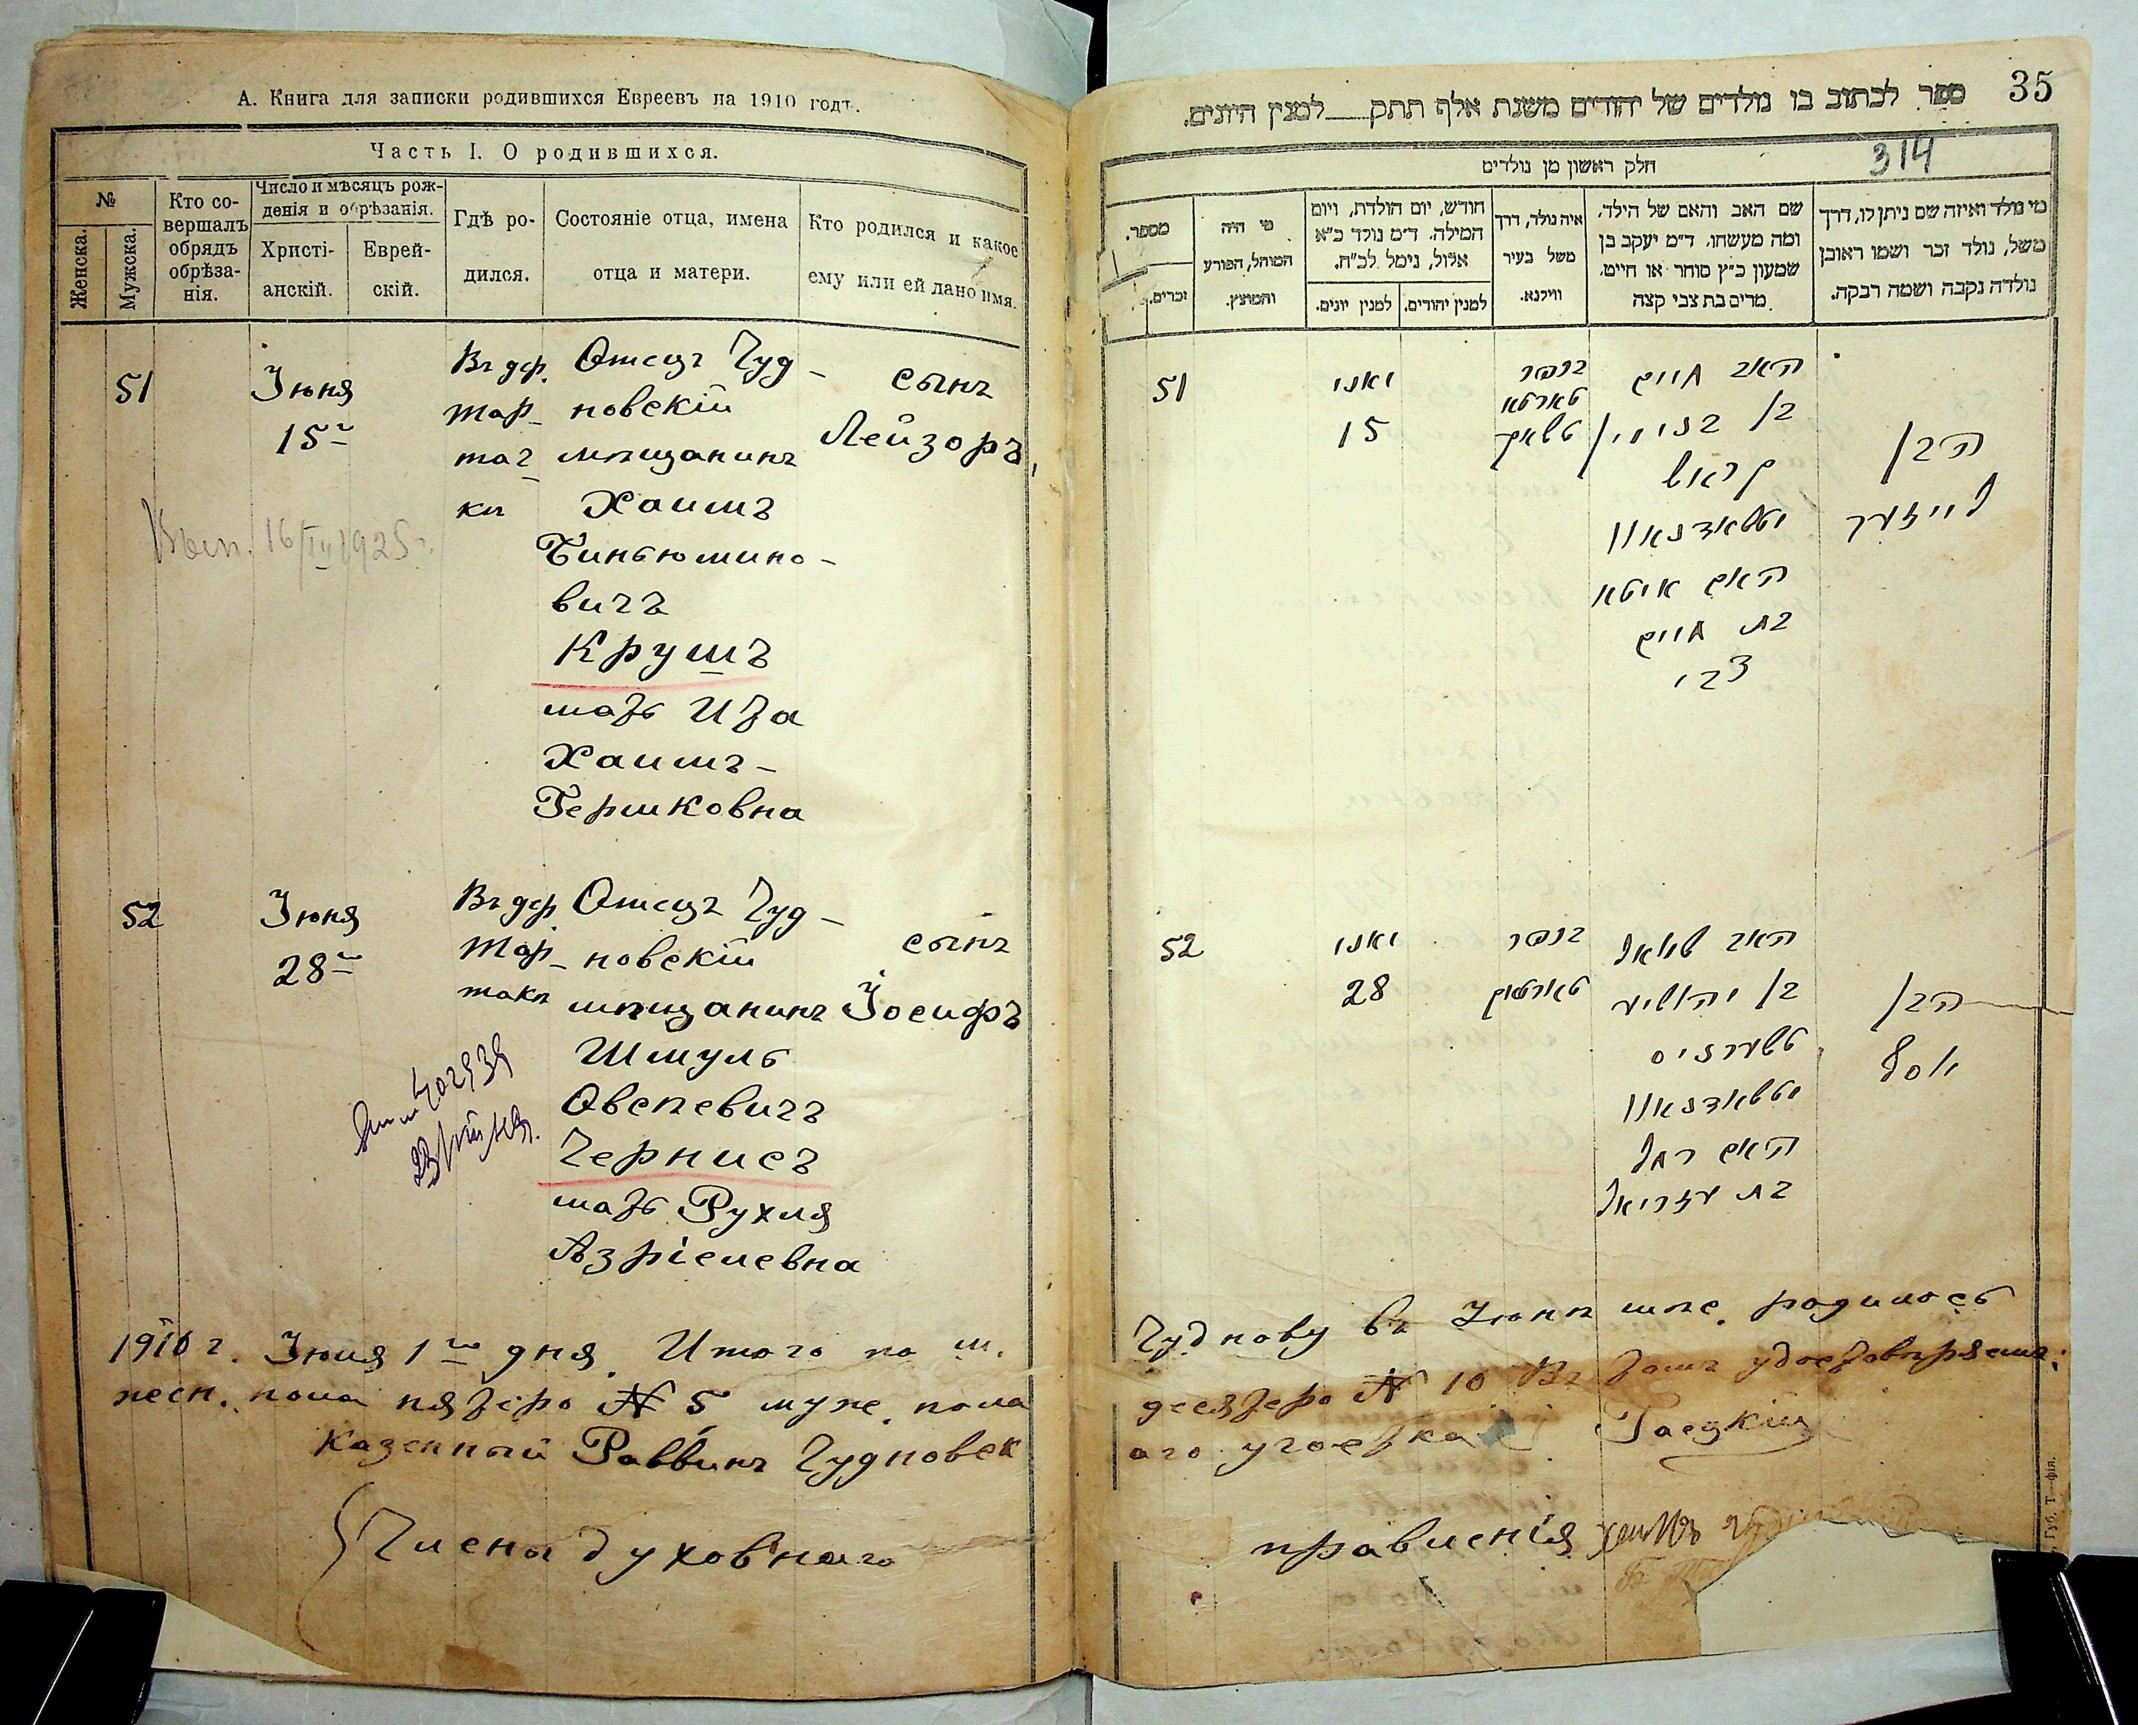 А. Книга для записки родившихся Евреевъ на 1910 годъ.
Часть I. О родившихся.
№
Женска.
Мужска.
Кто со-
вершалъ
обрядъ
обрѣза-
нія.
Число и мѣсяцъ рож-
денія и обрѣзанія.
Христі-
анскій.
Еврей-
скій.
Гдѣ ро-
дился.
Состояніе отца, имена
отца и матери.
Кто родился и какое
ему или ей дано имя.
51
Іюня
15го
Въ дер.
Тар-
тач-
кѣ
Отецъ Чуд-
новскій
мѣщанинъ
Хаимъ
Биньюмино-
вичъ
Крушъ
мать Ита
Хаимъ-
Гершковна
сынъ
Лейзоръ,
16/IV 1925 г.
52
Іюня
28го
Въ дер
Тар-
такѣ
Отецъ Чуд-
новскій
мѣщанинъ
Шмуль
Овсеевичъ
Чернисъ
мать Рухля
Азріелевна
сынъ
Іосифъ
1910 г. Іюля 1го дня. Итого по м.
песн. пола пятеро № 5 муже. пола
Казенный Раввинъ Чудновск
Члены духовнаго
35
ספר לכתוב בו נולדים של יהודים משנת אלף תתק למנין היונים.
314
חלק ראשון מן נולדים
מספר.
זכרים.
מי היה
המוהל, הפורע
והמוצץ.
חודש, יום הולדת, ויום
המילה. ד״מ נולד כ״א
אלול, נימל לכ״ח.
למנין יונים.
למנין יהודים.
איה נולד, דרך
משל בעיר
ווילנא.
שם האב והאם של הילד,
ומה מעשהו. ד״מ יעקב בן
שמעון כ״ץ סוחר או חייט.
מרים בת צבי קצה
מי נולד ואיזה שם ניתן לו, דרך
משל, נולד זכר ושמו ראובן
נולדה נקבה ושמה רבקה.
51
יאני
15
בכפר
טארטא
טשאק
האב חיים
בן בנימין
קראש
וטשאדנאוו
האם איטא
בת חיים
צבי
הבן
לייזער
52
יאני
28
בכפר
טארטאק
האב שמואל
בן יהושיע
טשערניס
וטשאדנאוו
האם רחל
בת עזריאל
הבן
יוסף
Чуднову въ Іюнѣ мѣс. родилось
десятеро № 10 Въ томъ удостовѣряемъ:
аго участка Гаецкій
правленія
Губ. Т—фія.